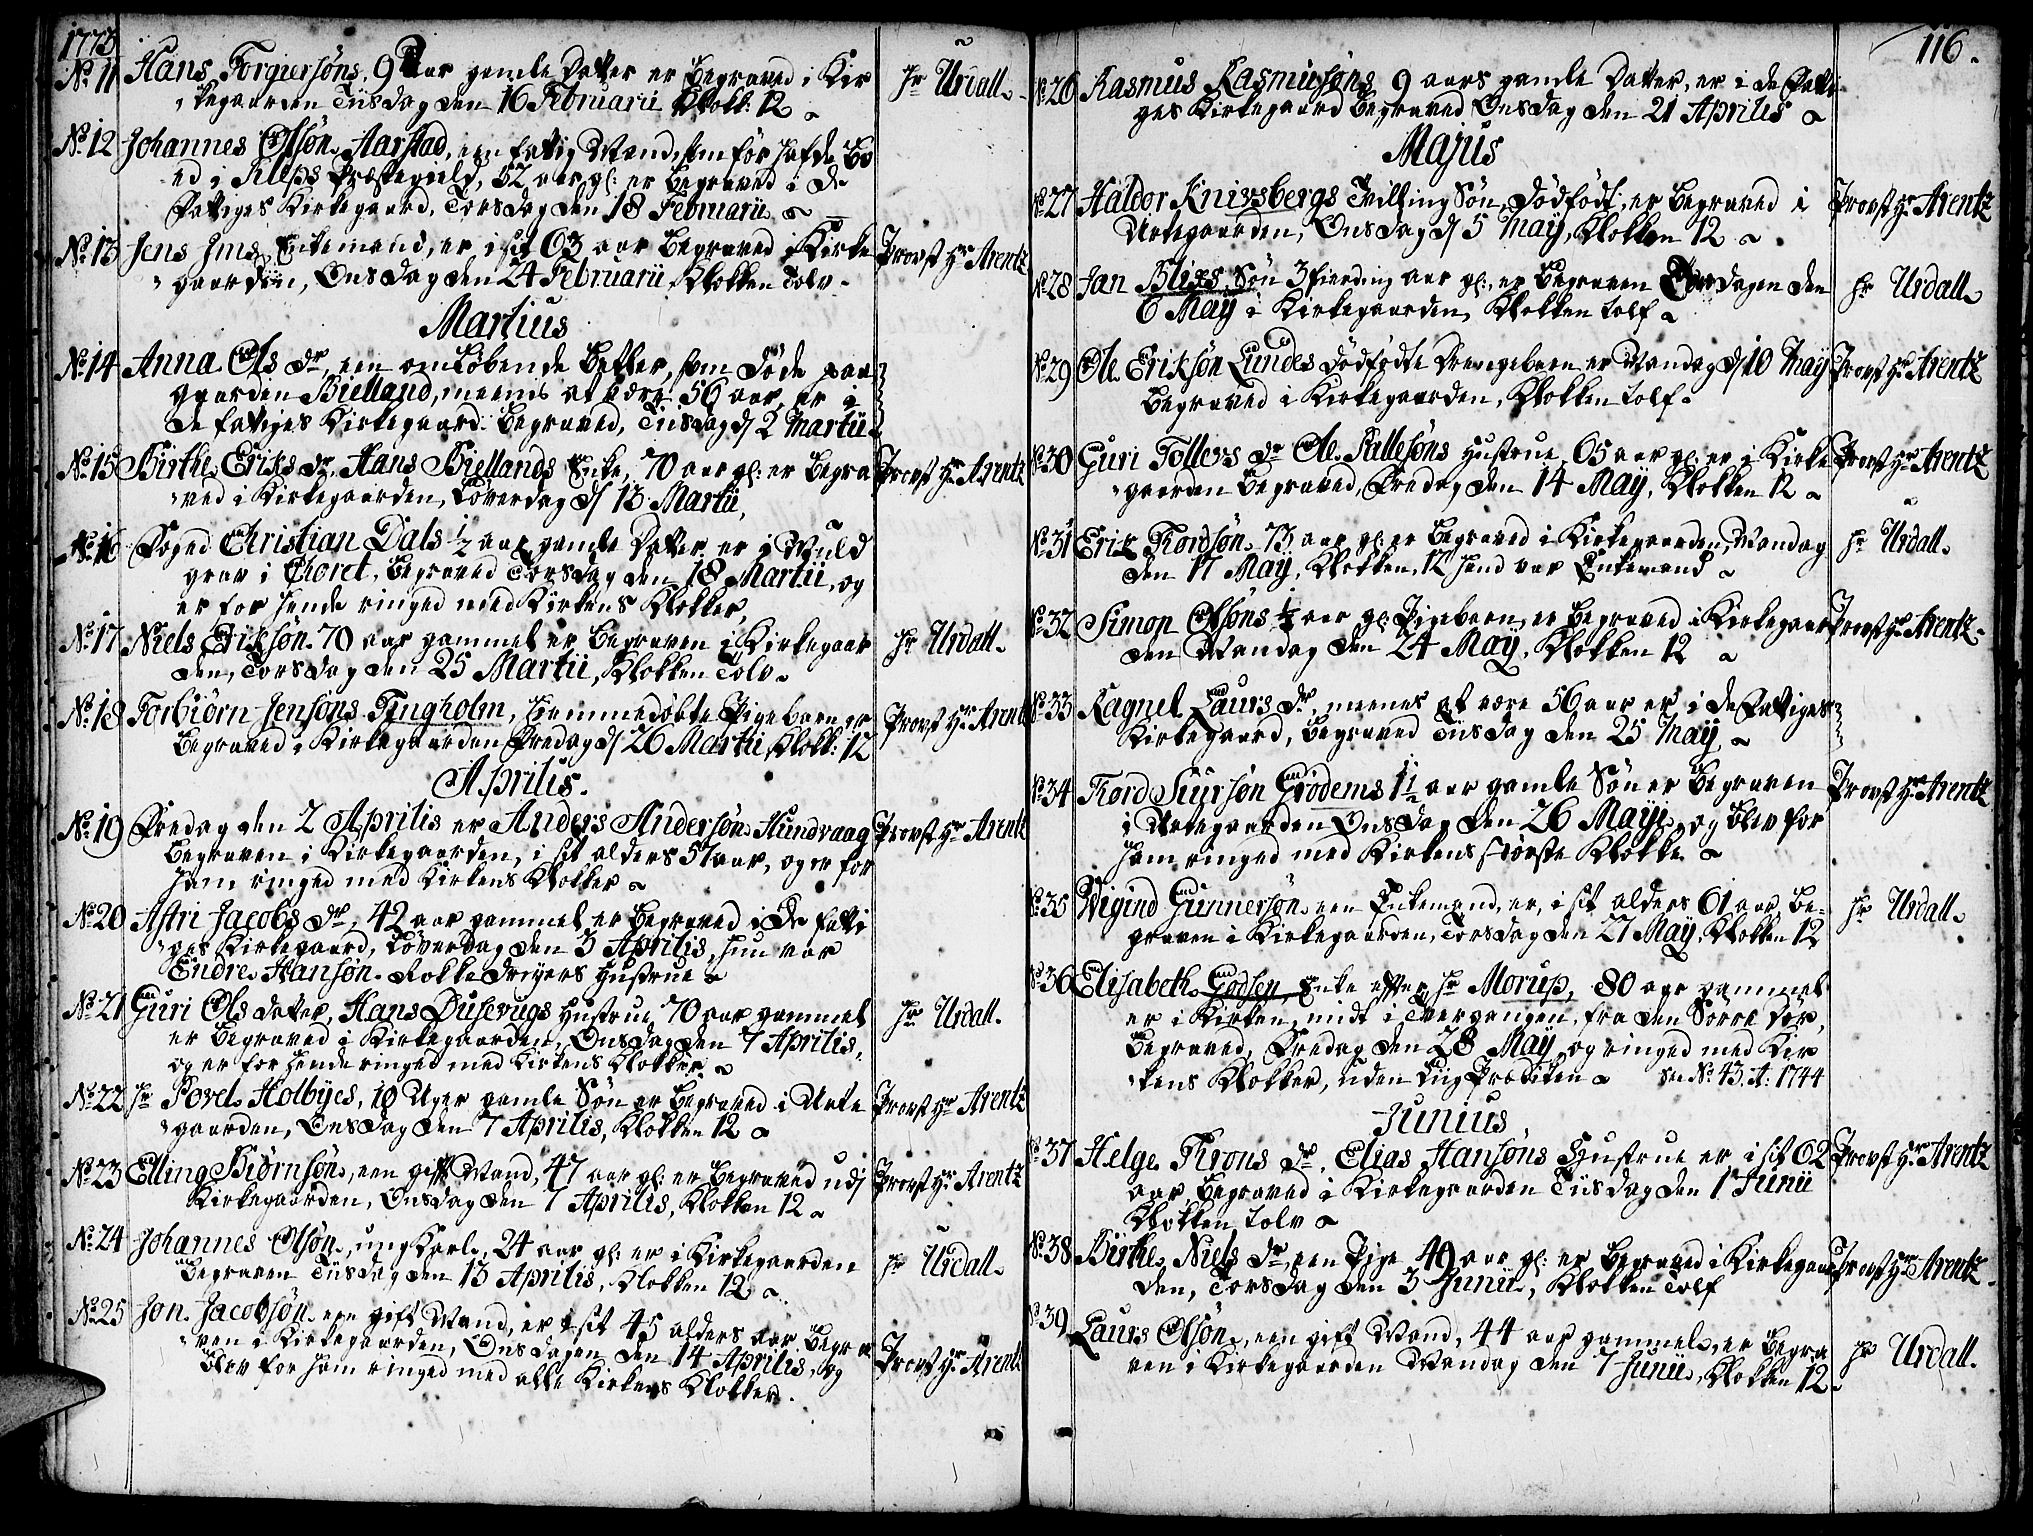 1773
No 11 Hans Torgiersøns 9 Aar gamle Datter er Begraved i Kir
kegaarden Tiisdag den 16 Februarii Klok: 12
Hr Urdall
No 12 Johannes Olsøn Aarstad, een fattig Mand, som før hafde Bo
ed i Kleps Præstegield, 52 aar gl: er begraved i de
Fattiges Kirkegaard, Torsdag den 18 Februarii
No 13 Jens Jms, Enkemand, er i sit 63 aar Begraved i Kirke
gaarden, Onsdag den 24 Februarii Klokken Tolv
Provst Hr Arentz
Martius
No 14 Anna Ols dr, een omløbende Betler, som døde paa
gaarden Bielland, meenis at være 56 aar, er i
de fattiges Kirkegaard Begraved, Tiisdag d/ 2 Martii
No 15 Birthe Eriks dr, Hans Biellands Enke, 70 aar gl: er Begra
ved i Kirkegaarden, Løverdag d/ 13 Martii,
Provst Hr Arentz
No 16 Foged Christian Dals 1/2 aar gamle Datter er i Muld
grav i Choret, begraved Torsdag den 18 Martii, og
er for hende ringed med Kirkens Klokker,
No 17 Niels Eriksøn 70 aar gammel er Begraven i Kirkegaar
den, Torsdag den 25 Martii, Klokken Tolv
Hr Urdall
No 18 Torbiørn Jensøns Tingholm, hiemmedøbte Pigebarn er
Begraved i Kirkegaarden Fredag d/ 26 Martii Klok: 12
Provst Hr Arentz
Aprilis
No 19 Fredag den 2 Aprilis er Anders Andersøn Hundvaag
Begraven i Kirkegaarden, i sit alders 57 aar, og er for
ham ringed med Kirkens Klokker
Provst Hr Arentz
No 20 Astri Jacobs dr, 42 aar gammel er Begraved i de fatti
ges Kirkegaard, Løverdag den 3 Aprilis, hun var
Endre Hansøn Rokkedreyers Hustrue
No 21 Guri Ols datter, Hans Dusevigs Hustrue, 70 aar gammel
er Begraved i Kirkegaarden, Onsdag den 7 Aprilis,
og er for hende ringed med Kirkens Klokker
Hr Urdall.
No 22 Hr Povel Holbyes, 10 Uger gamle Søn er Begraved i Urte
gaarden, Onsdag den 7 Aprilis, Klokken 12
Provst Hr Arentz
No 23 Elling Biørnsøn, een gift Mand, 47 aar gl: er Begraved udj
Kirkegaarden, Onsdag den 7 Aprilis, Klokken 12
Provst Hr Arentz
No 24 Johannes Olsøn, ung Karl, 24 aar gl: er i Kirkegaarden
Begraven Tiisdag den 13 Aprilis, Klokken 12
Hr Urdall
No 25 Jon Jacobsøn een gift Mand, er i sit 45 alders aar Begra
ven i Kirkegaarden, Onsdagen den 14 Aprilis, og
blev for ham ringed med alle Kirkens Klokker.
Provst Hr Arentz
116.
No 26 Rasmus Rasmusøns 9 aars gamle Datter, er i de Fatti
ges Kirkegaard Begraved Onsdag den 21 Aprilis
Majus
No 27 Haldor Knivsbergs Tvilling Søn, dødfødt, er Begraved i
Urtegaarden, Onsdag d/ 5 May, Klokken 12
Provst Hr Arentz
No 28 Jan Blixs Søn 3 fierding aar gl: er Begraven Torsdagen den
6 May i Kirkegaarden, Klokken tolf
Hr Urdall
No 29 Ole Eriksøn Lundes dødfødte Drengebarn er Mandag d/ 10 May
Begraved i Kirkegaarden, Klokken tolf
Provst Hr Arentz
No 30 Guri Tollevs dr Ole Pallesøns Hustrue, 65 aar gl: er i Kirke
gaarden Begraved, Fredag den 14 May, Klokken 12
Provst Hr Arentz
No 31 Erik Tordsøn 73 aar gl: er Begraved i Kirkegaarden, Mandag
den 17 May, Klokken 12 hand var Enkemand
Hr Urdall.
No 32 Simon Olsøns 1/2 aar gl: Pigebarn, er Begraved i Kirkegaar
den Mandag den 24 May, Klokken 12
Provst Hr Arentz
No 33 Ragnel Laurs dr, meenes at være 56 aar er i de Fattiges
Kirkegaard, Begraved Tiisdag den 25 May
No 34 Tord Siursøn Grødems 1 1/2 aar gamle Søn er Begraven
i Urtegaarden Onsdag den 26 May, og blev for
ham ringed med Kirkens største Klokke
Provst Hr Arentz
No 35 Wigind Gunnersøn een Enkemand, er, i sit alders 61 aar, Be-
graven i Kirkegaarden, Torsdag den 27 May, Klokken 12
Hr Urdall
No 36 Elisabeth Godsen, Enke efter Hr Morup, 80 aar gammel
er i Kirken, midt i Tvergangen, fra den Norre dør,
Begraved, Fredag den 28 May og ringed med Kir
kens Klokker, uden Liig Prædiken See No 43 Ao 1744
Junius
No 37 Helge Trons dr, Elias Hansøns Hustrue er i sit 62
aar, Begraved i Kirkegaarden Tiisdag den 1 Junii
Klokken tolv
Provst Hr Arentz
No 38 Birthe Niels dr, een Pige 40 aar gl: er Begraved i Kirkegaar
den, Torsdag den 3 Junii, Klokken Tolf
Provst Hr Arentz
No 39 Laurs Olsøn, een gift Mand, 44 aar gammel, er Begra
ven i Kirkegaarden Mandag den 7 Junii, Klokken 12
Hr Urdall.